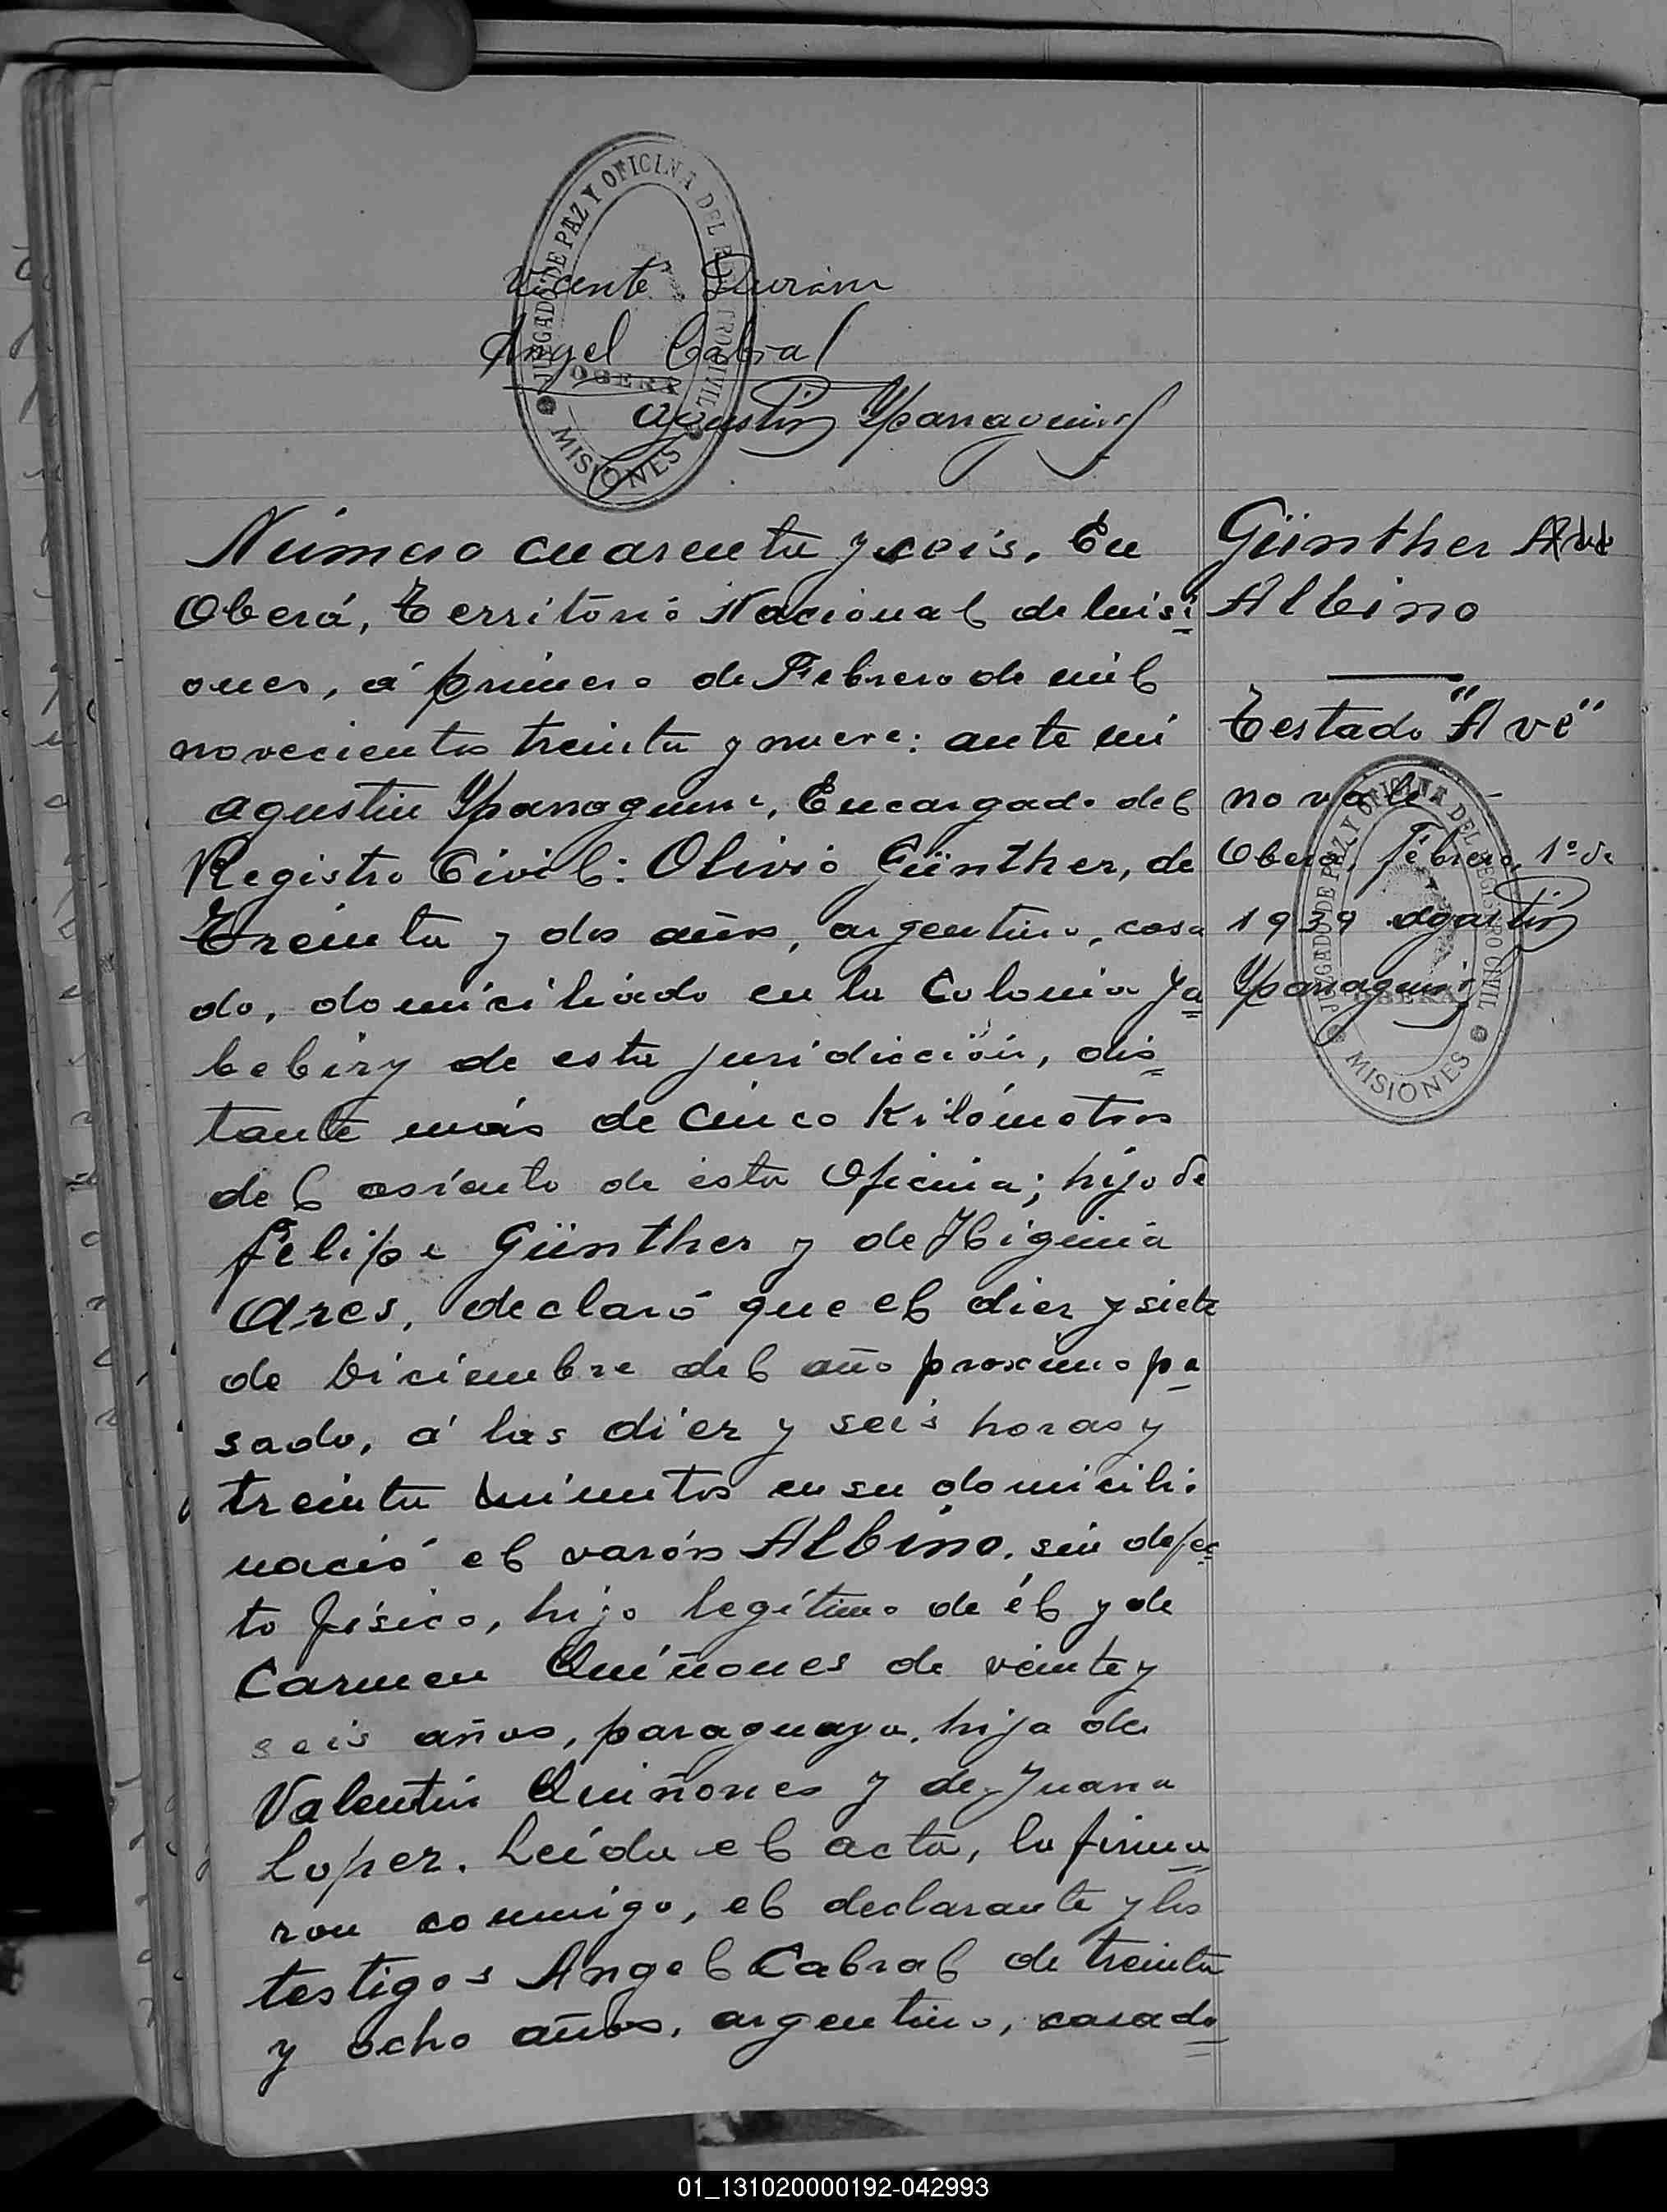 JUZGADO DE PAZ Y OFICINA DEL REGISTRO CIVIL
OBERÁ
MISIONES
Vicente Duriam
Angel Cabral
Agustin Yparraguirre
Número cuarenta y seis. En
Oberá, Territorio Nacional de Misi
ones, á primero de Febrero de mil
novecientos treinta y nueve: ante mi
Agustin Yparraguirre, Encargado del
Registro Civil: Olivio Günther, de
Treinta y dos años, argentino, casa
do, domiciliado en la Colonia Ya
bebiry de esta juridicción, dis
tante más de cinco Kilómetros
del asiento de esta Oficina; hijo de
Felipe Günther y de Higinia
Ares, declaró que el diez y siete
de Diciembre del año proximo pa
sado, á las diez y seis horas y
treinta minutos en su domicilio
nació el varón Albino, sin defec
to físico, hijo legítimo de él y de
Carmen Quíñones de veinte y
seis años, paraguaya, hija de
Valentin Quiñones y de Juana
Lopez. Leída el acta, la firma
ron conmigo, el declarante y los
testigos Angel Cabral de treinta
y ocho años, argentino, casado
Günther Ave
Albino
Testado "Ave"
no vale
Oberá, Febrero 1º de
1939 Agustin
Yparraguirre
JUZGADO DE PAZ Y OFICINA DEL REGISTRO CIVIL
OBERÁ
MISIONES
01_131020000192-042993